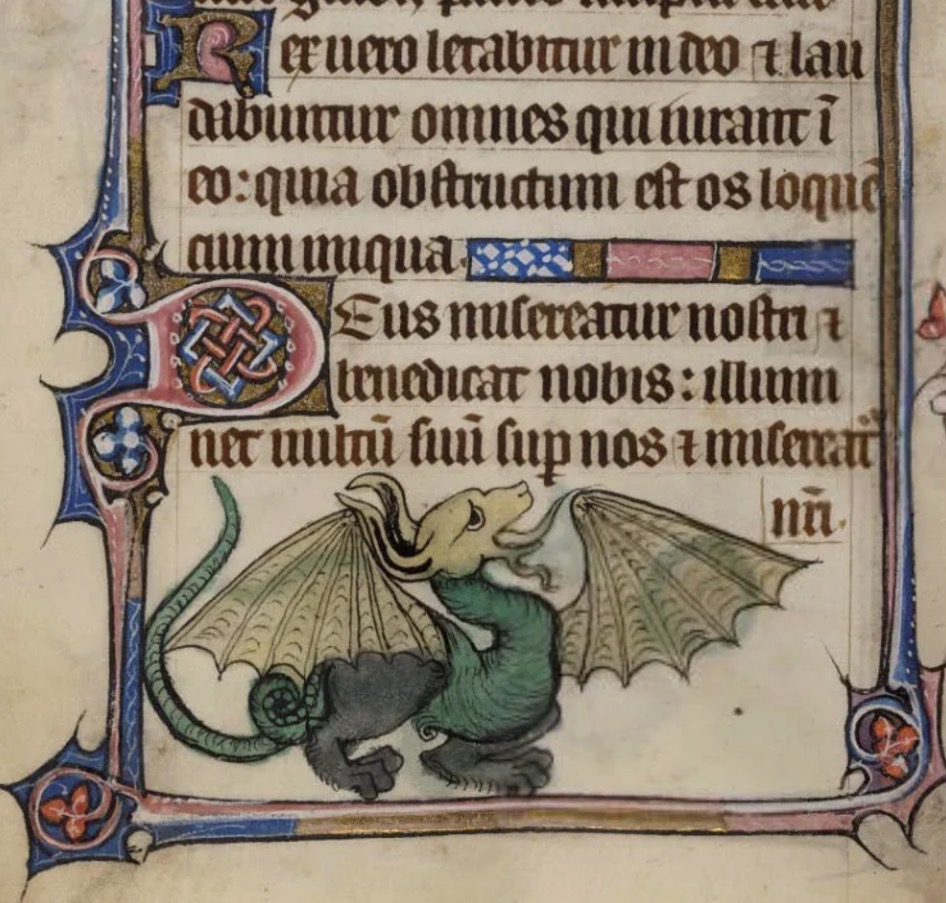 Rex uero letabitur in deo ⁊ lau
dabuntur omnes qui iurant ī
eo: quia obstructum est os loquē
cium iniqua.
Deus misereatur nostri ⁊
benedicat nobis: illumi
net uultū suū suꝑ nos ⁊ misereat᷑
nr̄i.